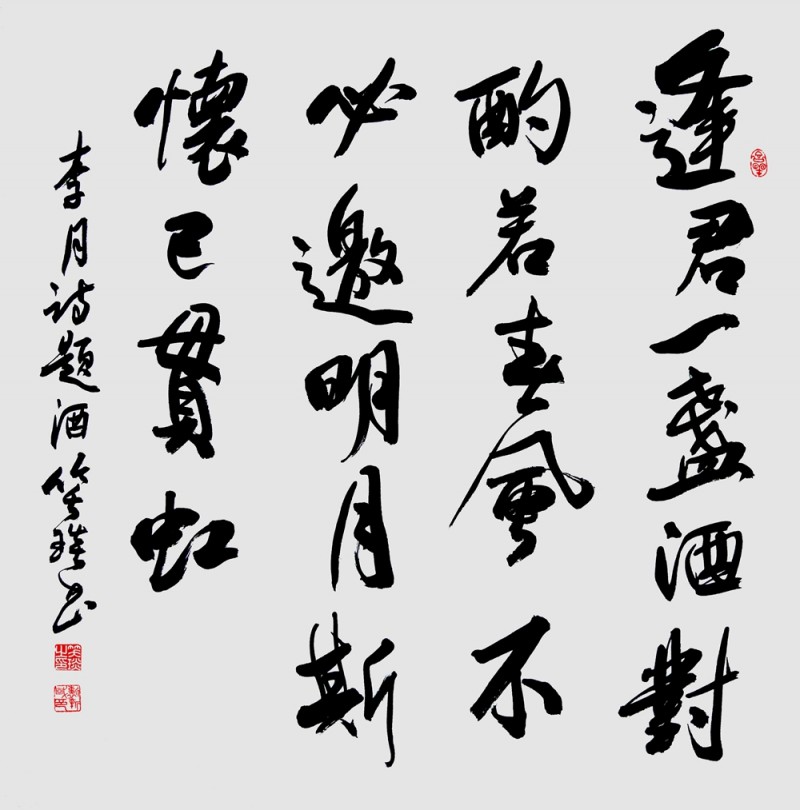 逢君一盏酒對
酌若春風不
必邀明月斯
懷已貫虹
李月詩題酒